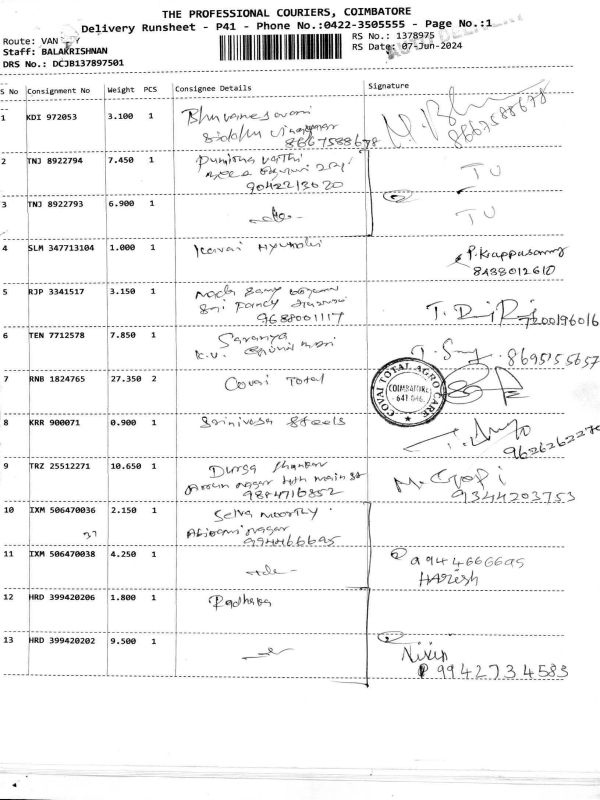 THE PROFESSIONAL COURIERS, COIMBATORE
Delivery Runsheet - P41 - Phone No.:0422-3505555 - Page No.:1
Route: VAN
RS No.: 1378975
Staff: BALAKRISHNAN
RS Date: 07-Jun-2024
AUTO DELIVERY
DRS No.: DCJB137897501
S No Consignment No Weight PCS Consignee Details Signature
1 KDI 972053 3.100 1 Bhuvaneswari
8667588678
8667588678
2 TNJ 8922794 7.450 1
9042213020
TU
3 TNJ 8922793 6.900 1 -do-
TU
4 SLM 347713104 1.000 1 Kovai Hyundai
P. Krappasamy
8438012610
5 RJP 3341517 3.150 1
Sri Fancy
9688001117
7200196016
6 TEN 7712578 7.850 1 Saranya
K.V.
8695155657
7 RNB 1824765 27.350 2 Covai Total
COVAI TOTAL AGRO CARE
COIMBATORE
- 641 046.
8 KRR 900071 0.900 1 Srinivasa Steels
9626262270
9 TRZ 25512271 10.650 1 Durga Shankar
nagar 4th main st
9884716852
M. Gopi
9344203753
10 IXM 506470036 2.150 1 Selva moorthy
37
Abirami nagar
9944666695
11 IXM 506470038 4.250 1 -do-
9944666695
HARESH
12 HRD 399420206 1.800 1 Radhika
13 HRD 399420202 9.500 1
Nixin
9942734583